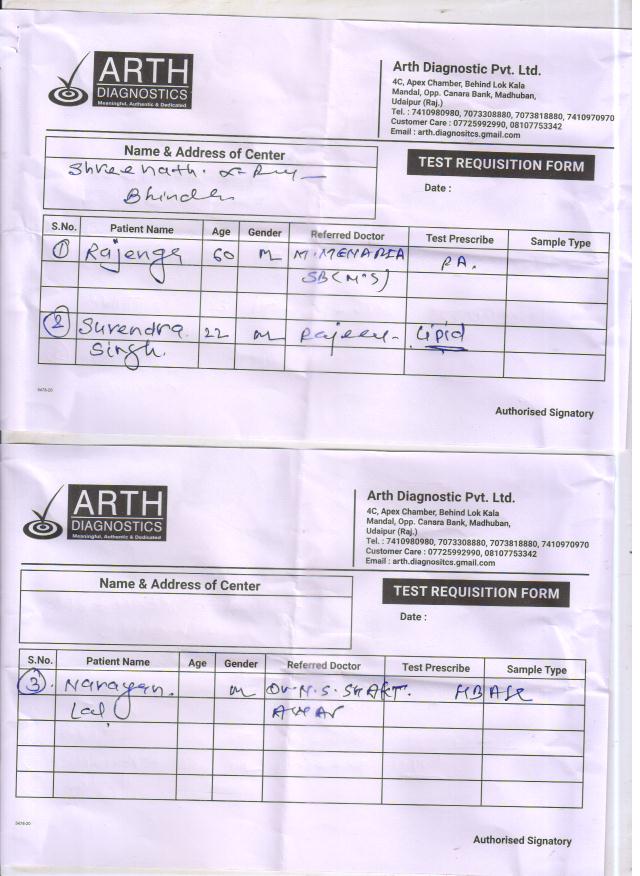 ARTH
DIAGNOSTICS
Meaningful, Authentic & Dedicated
Arth Diagnostic Pvt. Ltd.
4C, Apex Chamber, Behind Lok Kala
Mandal, Opp. Canara Bank, Madhuban,
Udaipur (Raj.)
Tel. : 7410980980, 7073308880, 7073818880, 7410970970
Customer Care : 07725992990, 08107753342
Email : arth.diagnositcs.gmail.com
Name & Address of Center
Shreenath
Bhinder
TEST REQUISITION FORM
Date :
S.No. Patient Name Age Gender Referred Doctor Test Prescribe Sample Type
1 Rajenga 60 M M. MENARIA RA.
SB(M.S)
2 Surendra 22 M Rajeev Lipid
Singh.
5478-20
Authorised Signatory
ARTH
DIAGNOSTICS
Meaningful, Authentic & Dedicated
Arth Diagnostic Pvt. Ltd.
4C, Apex Chamber, Behind Lok Kala
Mandal, Opp. Canara Bank, Madhuban,
Udaipur (Raj.)
Tel. : 7410980980, 7073308880, 7073818880, 7410970970
Customer Care : 07725992990, 08107753342
Email : arth.diagnositcs.gmail.com
Name & Address of Center
TEST REQUISITION FORM
Date :
S.No. Patient Name Age Gender Referred Doctor Test Prescribe Sample Type
3. Narayan. M Dr. N.S. SHAKT. HBA1c
Lal AWAR
5478-20
Authorised Signatory